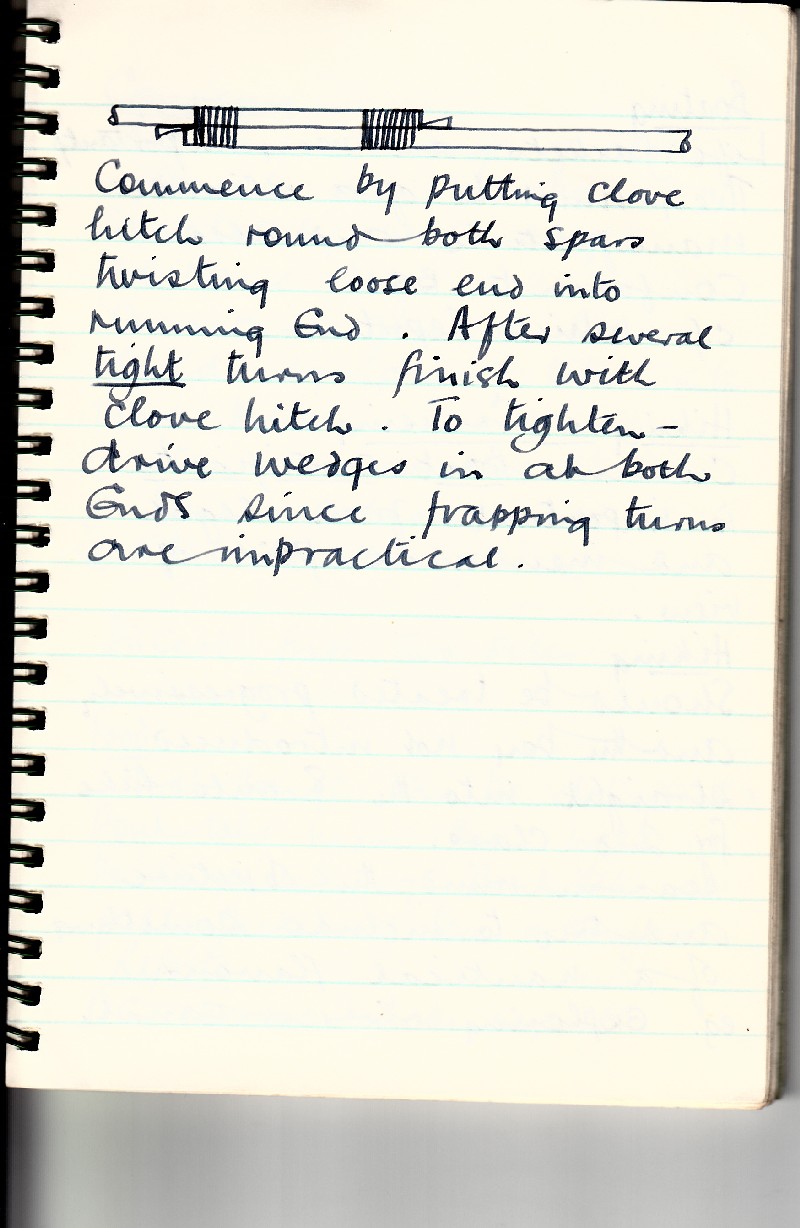 Commence by putting clove
hitch round both spars
twisting loose end into
running End . After several
tight turns finish with
clove hitch . To tighten -
drive wedges in at both
Ends since frapping turns
are impractical .